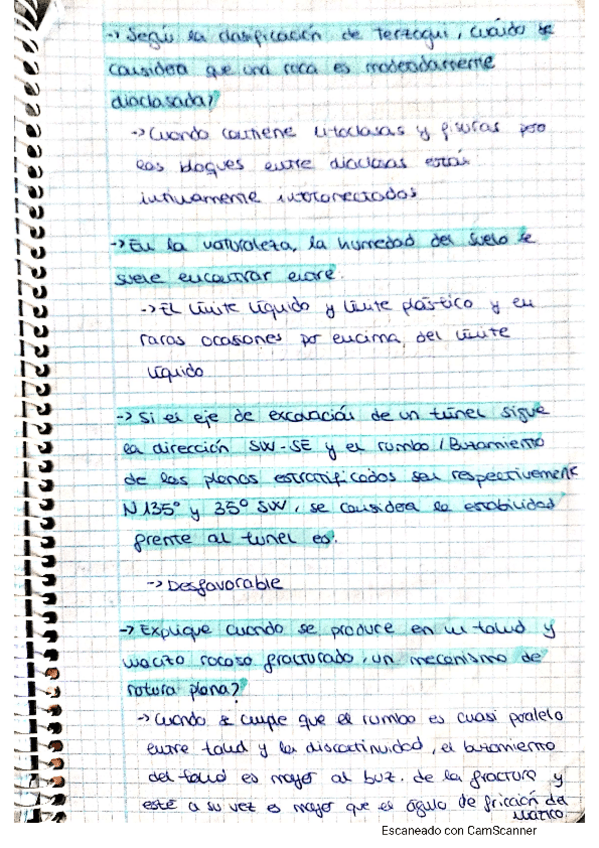 -> Según la clasificación de Terzagui, cuándo se
considera que una roca es moderadamente
diaclasada?
-> Cuando contiene litoclasas y fisuras pero
los bloques entre diaclasas están
intimamente interconectados
-> En la naturaleza, la humedad del suelo se
suele encontrar entre.
-> El límite líquido y límite plástico y en
raras ocasiones por encima del límite
líquido
-> Si el eje de excavación de un túnel sigue
la dirección SW-SE y el rumbo/Buzamiento
de los planos estratificados son respectivamente
N135° y 35° SW, se considera la estabilidad
frente al tunel es.
-> Desfavorable
-> Explique cuando se produce en un talud y
macizo rocoso fracturado, un mecanismo de
rotura plana?
-> Cuando se cumple que el rumbo es cuasi paralelo
entre talud y la discontinuidad, el buzamiento
del talud es mayor al buz. de la fractura y
este a su vez es mayor que el ángulo de fricción del
macizo.
Escaneado con CamScanner